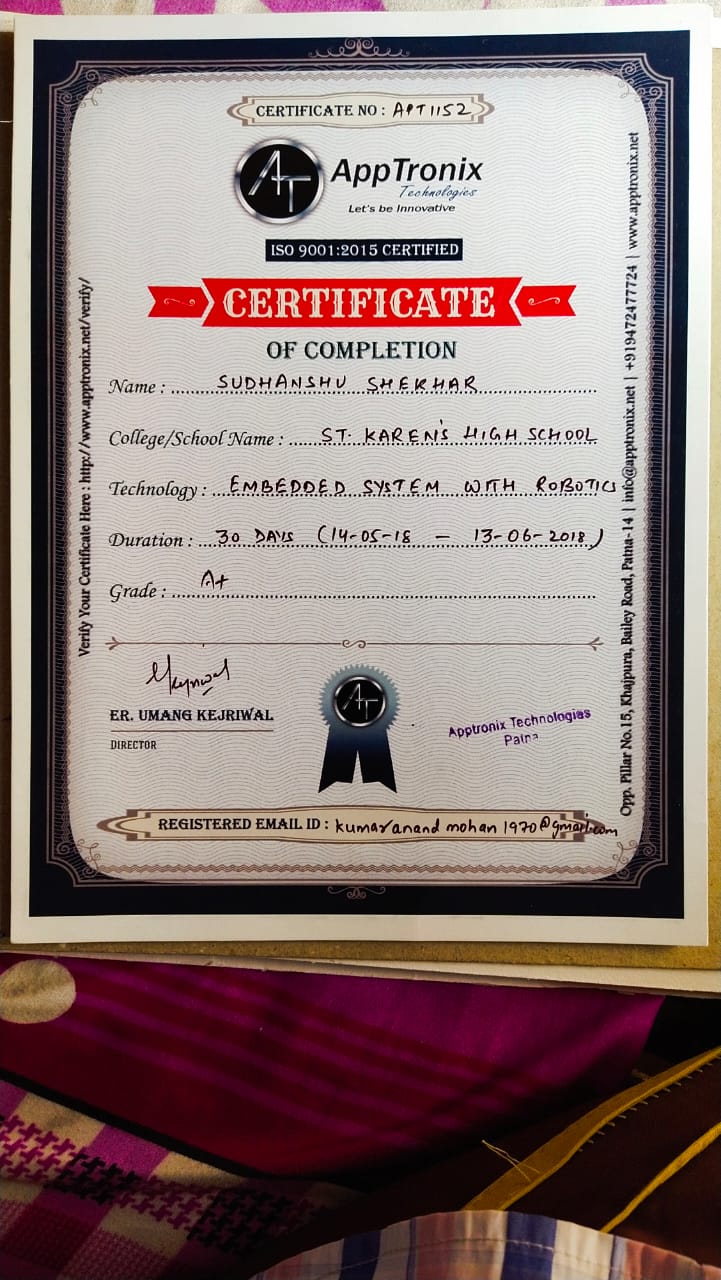 CERTIFICATE NO : APT1152
AT
AppTronix
Technologies
Let's be Innovative
ISO 9001:2015 CERTIFIED
CERTIFICATE
OF COMPLETION
Name : SUDHANSHU SHEKHAR
College/School Name : ST. KAREN'S HIGH SCHOOL
Technology : EMBEDDED SYSTEM WITH ROBOTICS
Duration : 30 DAYS (14-05-18 – 13-06-2018)
Grade : A+
Kejriwal
ER. UMANG KEJRIWAL
DIRECTOR
AT
Apptronix Technologies
Patna
REGISTERED EMAIL ID : kumaranandmohan1970@gmail.com
Verify Your Certificate Here : http://www.apptronix.net/verify/
Opp. Pillar No.15, Khajpura, Bailey Road, Patna-14 | info@apptronix.net | +919472477724 | www.apptronix.net